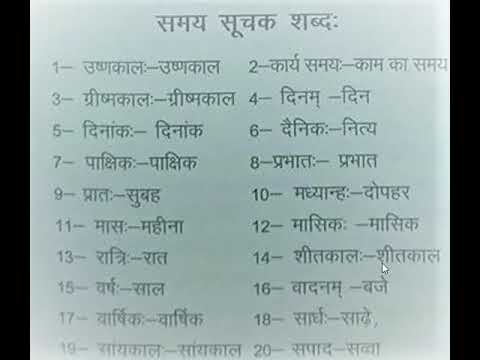 समय सूचक शब्द:
1– उष्णकालः–उष्णकाल 2–कार्य समयः–काम का समय
3– ग्रीष्मकालः–ग्रीष्मकाल 4– दिनम् –दिन
5– दिनांकः– दिनांक 6– दैनिकः–नित्य
7– पाक्षिकः–पाक्षिक 8–प्रभातः– प्रभात
9– प्रातः–सुबह 10– मध्यान्हः–दोपहर
11– मासः–महीना 12– मासिकः –मासिक
13– रात्रिः–रात 14– शीतकालः–शीतकाल
15– वर्षः–साल 16– वादनम् –बजे
17– वार्षिकः–वार्षिक 18– सार्धः–साढ़े,
19– सांयकालः–सांयकाल 20– सपाद–सव्वा